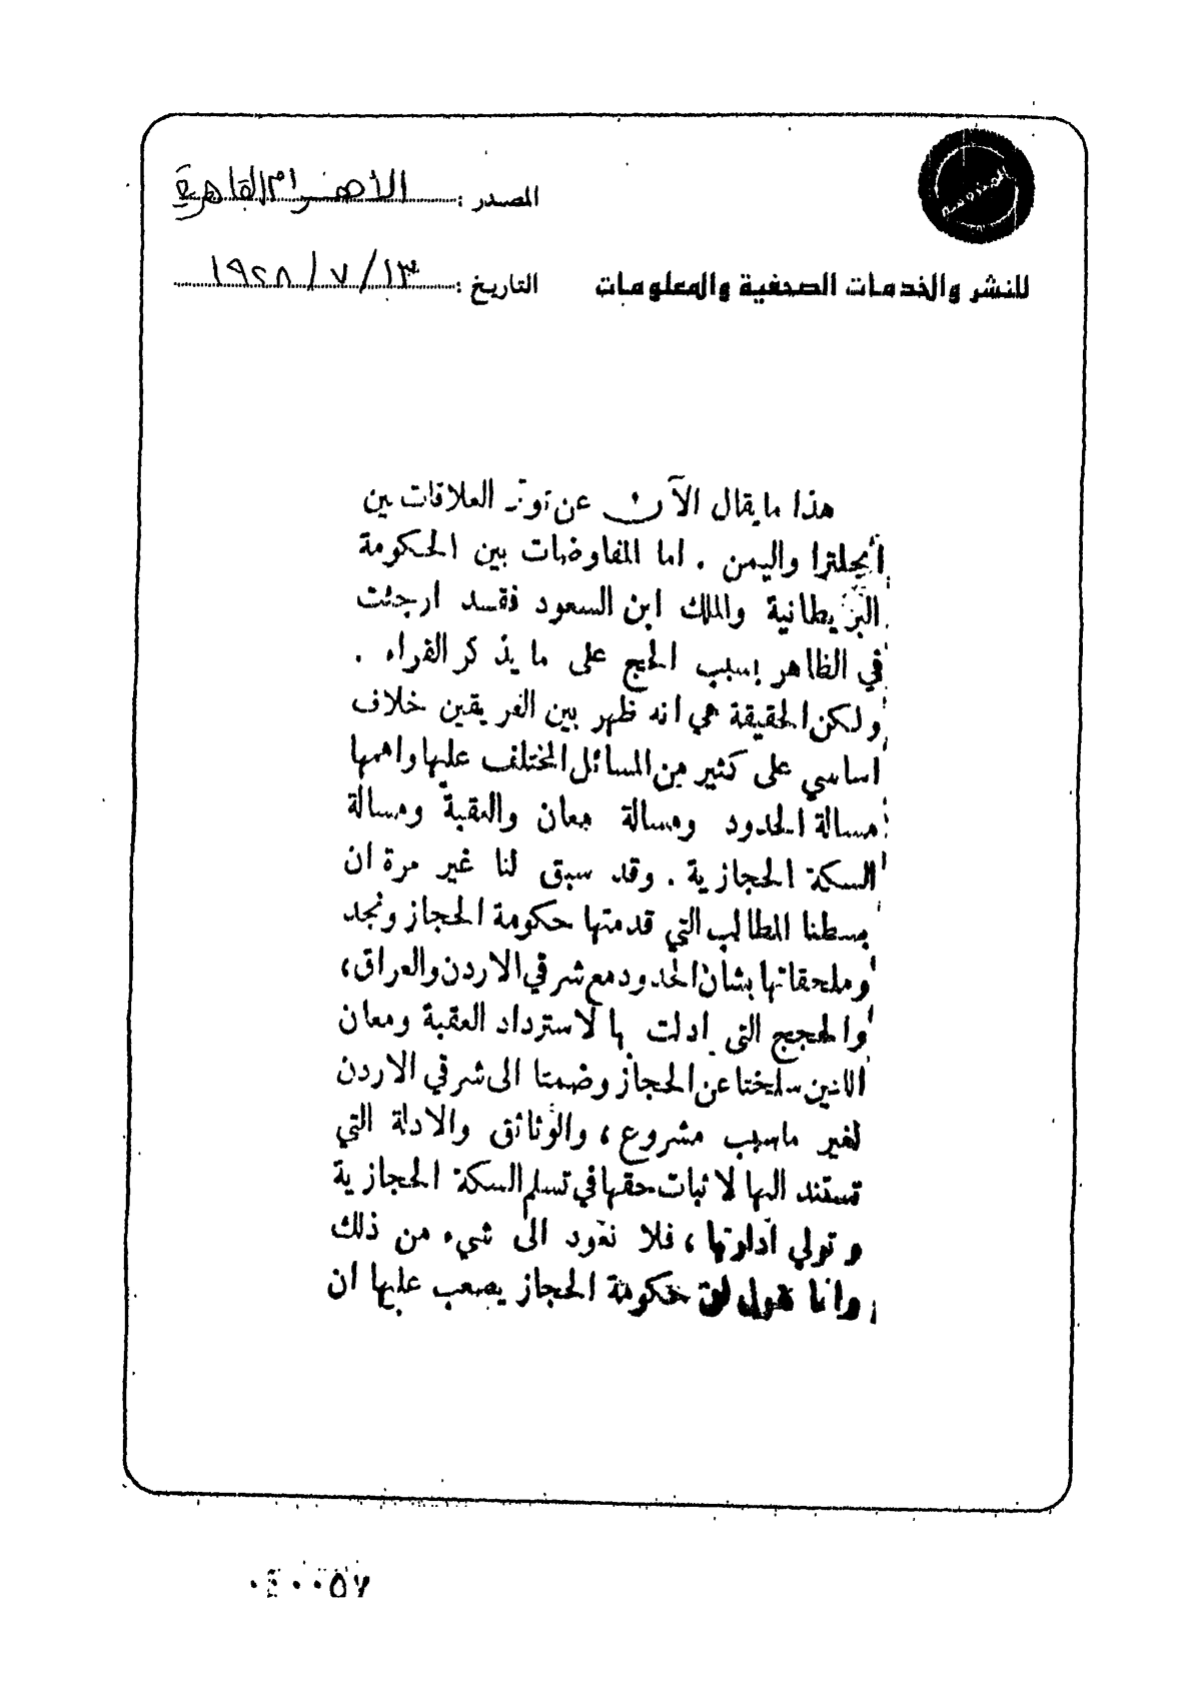 المصدر : الأهرام القاهرية
للنشر والخدمات الصحفية والمعلومات
التاريخ : ١٣ / ٧ / ١٩٢٨
هذا ما يقال الآن عن توتر العلاقات بين
انجلترا واليمن . اما المفاوضات بين الحكومة
البريطانية والملك ابن السعود فقد ارجئت
في الظاهر بسبب الحج على ما يذكر القراء .
ولكن الحقيقة هي انه ظهر بين الفريقين خلاف
اساسي على كثير من المسائل المختلف عليها واهمها
مسالة الحدود ومسالة معان والعقبة ومسالة
السكة الحجازية . وقد سبق لنا غير مرة ان
بسطنا المطالب التي قدمتها حكومة الحجاز ونجد
وملحقاتها بشان الحدود مع شرقي الاردن والعراق ،
والحجج التي ادلت بها لاسترداد العقبة ومعان
اللتين سلختا عن الحجاز وضمتا الى شرقي الاردن
لغير ماسبب مشروع ، والوثائق والادلة التي
تستند اليها لاثبات حقها في تسلم السكة الحجازية
وتولي ادارتها ، فلا نعود الى شيء من ذلك
وانما نقول ان حكومة الحجاز يصعب عليها ان
٠٤٠٠٥٧